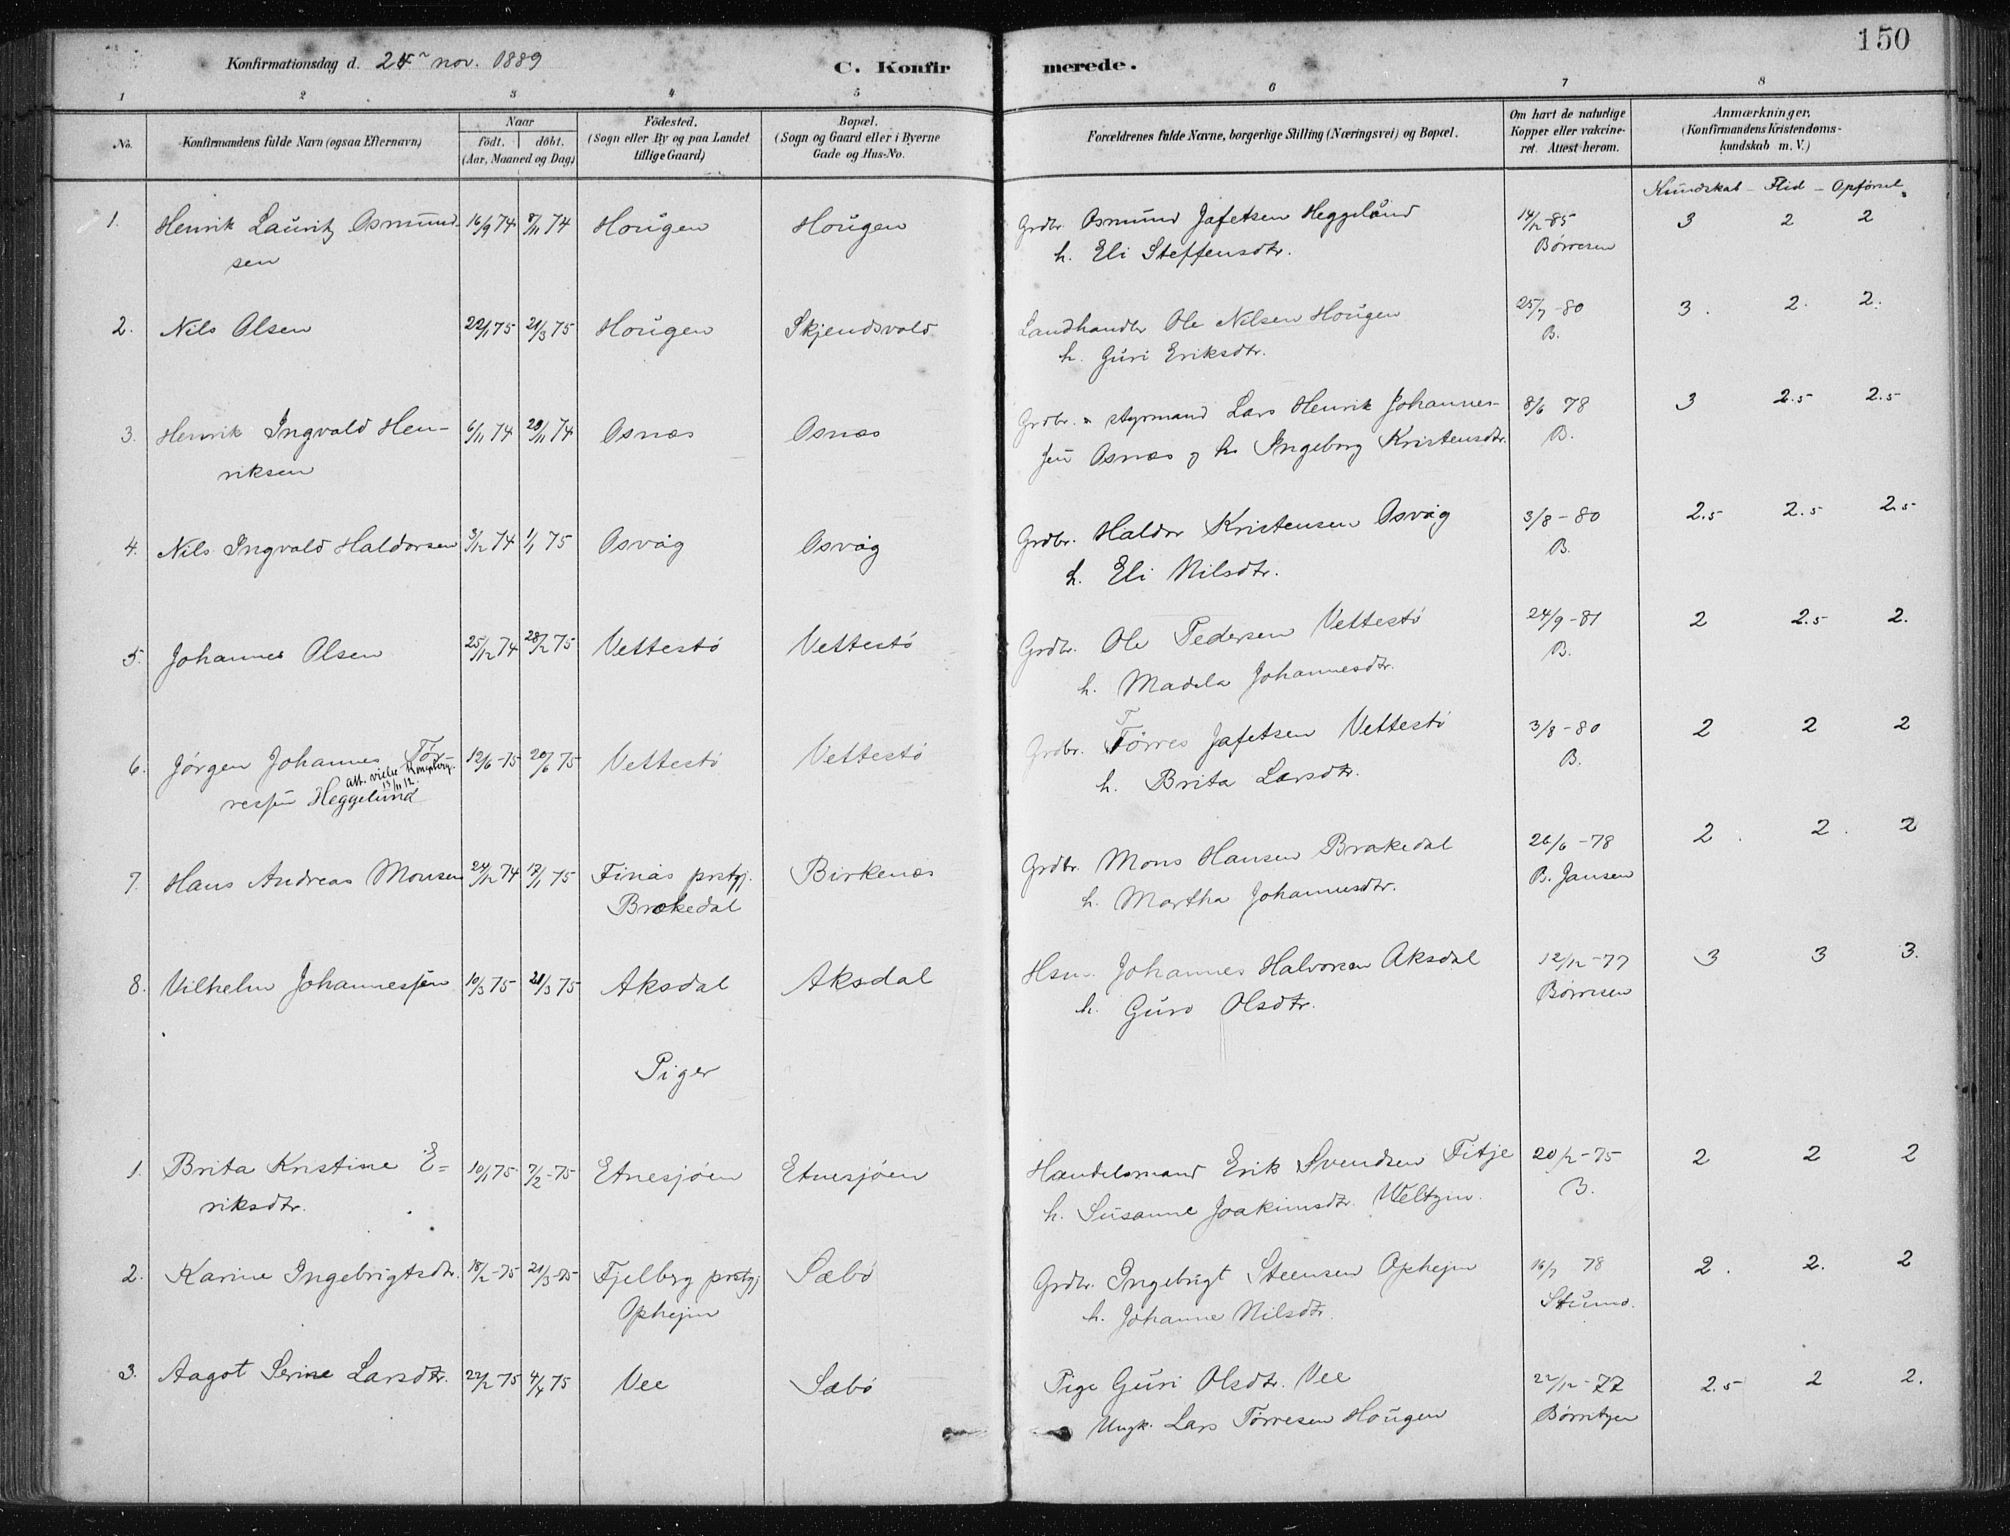 150
Konfirmationsdag d. 24de nov. 1889
C. Konfirmerede.
1 2 3 4 5 6 7 8
No.
Konfirmandens fulde Navn (ogsaa Efternavn)
Naar
födt. döbt.
(Aar, Maaned og Dag)
Födested.
(Sogn eller By og paa Landet
tillige Gaard)
Bopæl.
(Sogn og Gaard eller i Byerne
Gade og Hus-No.
Forældrenes fulde Navne, borgerlige Stilling (Næringsvei) og Bopæl.
Om havt de naturlige
Kopper eller vakcine-
ret. Attest herom.
Anmærkninger,
(Konfirmandens Kristendoms-
kundskab m. V.)
Kundskab - Flid - Opførsel.
1. Henrik Lauritz Osmund- 16/9 74 8/11 74 Hougen Hougen Grdbr. Osmund Jafetsen Heggelund 14/12-85 3 2 2
sen h. Eli Steffensdtr. Børresen
2. Nils Olsen 22/1 75 21/3 75 Hougen Skjendsvold Landhandlr Ole Nilsen Hougen 25/7-80 3. 2. 2.
h. Guri Eriksdtr. B.
3. Henrik Ingvald Hen- 6/11 74 29/11 74 Osnæs Osnæs Grdbr. & styrmand Lars Henrik Johannes- 8/6 78 3 2.5 2.5
riksen sen Osnæs og h. Ingeborg Kristensdtr. B.
4. Nils Ingvald Haldorsen 3/12 74 1/1 75 Osvåg Osvåg Grdbr. Haldor Kristensen Osvåg 3/8-80 2.5 2.5 2.5
h. Eli Nilsdtr. B.
5. Johannes Olsen 25/12 74 28/2 75 Vettestø Vettestø Grdbr. Ole Pedersen Vettestø 24/9-81 2 2.5 2.
h. Madela Johannesdtr. B.
6. Jørgen Johannes Tør- 12/6-75 20/6 75 Vettestø Vettestø Grdbr. Tørres Jafetsen Vettestø 3/8-80 2 2 2
att. vielse Kongsberg.
13/11 12.
ressen Heggelund h. Brita Larsdtr. B.
7. Hans Andreas Monsen 24/12 74 17/1 75 Finås prstgj. Birkenæs Grdbr. Mons Hansen Brakedal 26/6-78 2. 2. 2
Brekedal h. Martha Johannesdtr. B. Jansen
8. Vilhelm Johannessen 10/3 75 21/3 75 Aksdal Aksdal Hsm. Johannes Halvorsen Aksdal 12/12-77 3 3 3.
h. Guro Olsdtr. Børresen
Piger
1. Brita Kristine E= 10/1 75 7/2-75 Etnesjøen Etnesjøen Handelsmand Erik Svendsen Fitje 20/2-75 2 2 2
riksdtr. h. Susanne Joakimsdtr. Weltzin. B.
2. Karine Ingebrigtsdtr. 18/2-75 21/3-75 Fjelberg prstgj Sæbø Grdbr. Ingebrigt Steensen Ophejm 16/7 78 2. 2. 2
Ophejm h. Johanne Nilsdtr.
3. Aagot Serine Larsdtr. 22/2 75 4/4 75 Vee Sæbø Pige Guri Olsdtr. Vee 22/12-77 2.5 2 2.
Ungk. Lars Tørresen Hougen